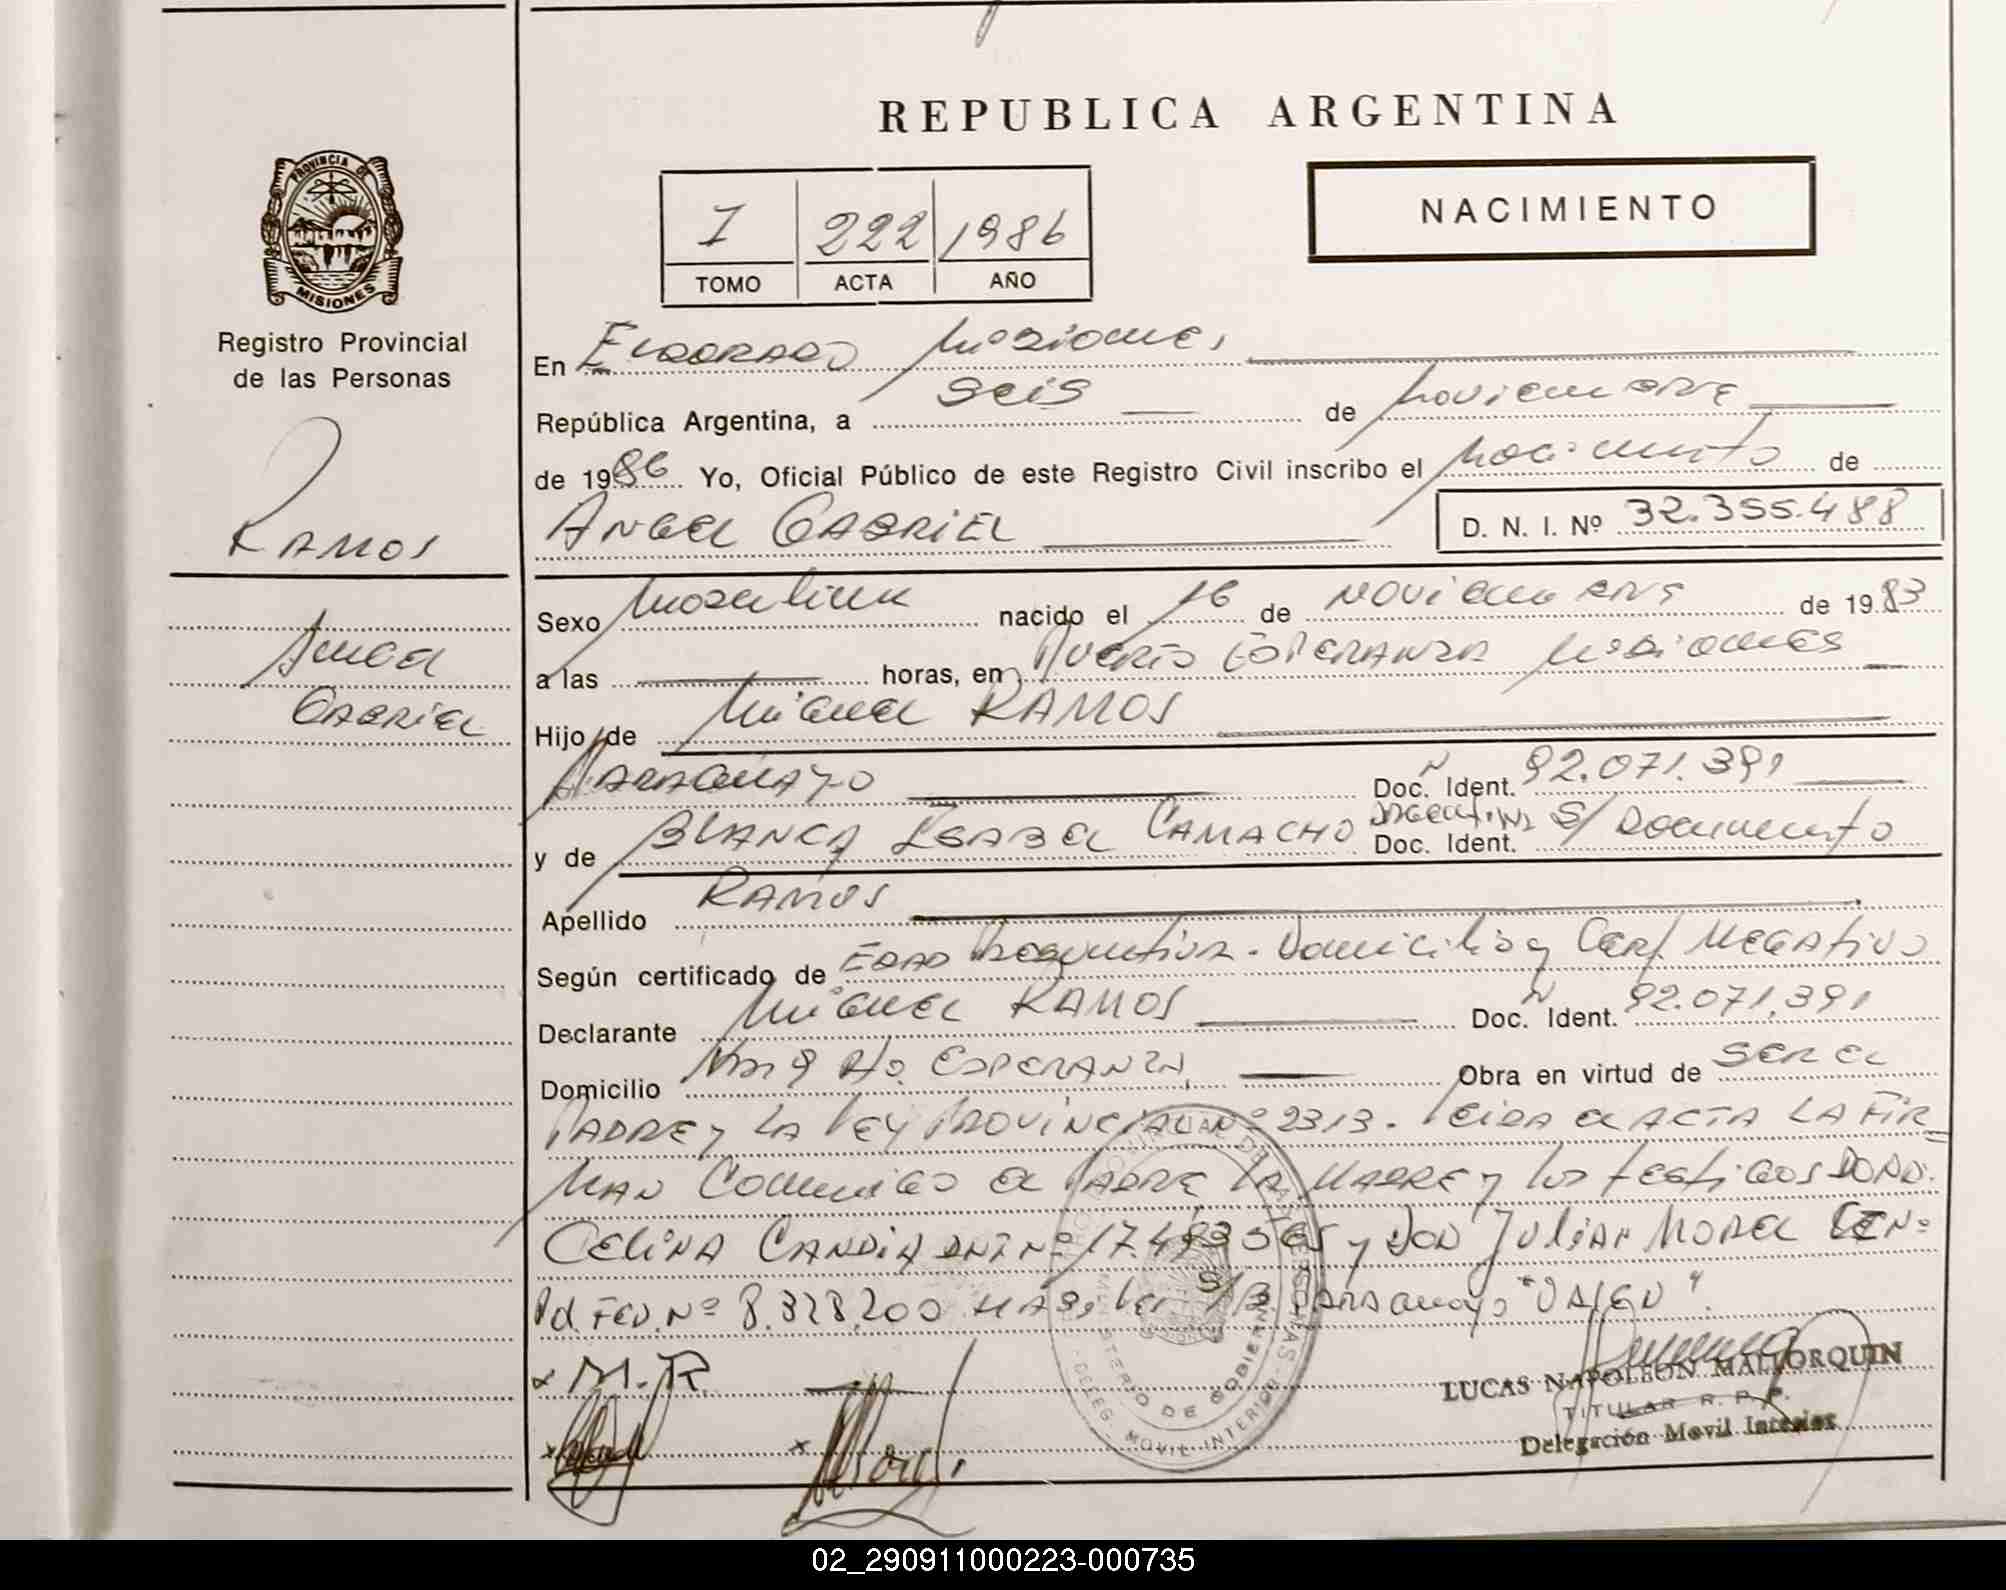 REPUBLICA ARGENTINA
PROVINCIA DE
MISIONES
Registro Provincial
de las Personas
I 222 1986
TOMO ACTA AÑO
NACIMIENTO
RAMOS
Angel
GABRIEL
En ELDORADO Misiones,
República Argentina, a seis de Noviembre
de 1986 Yo, Oficial Público de este Registro Civil inscribo el Nacimiento de
ANGEL GABRIEL D. N. I. Nº 32.355.488
Sexo Masculino nacido el 16 de NOVIEMBRE de 1983
a las horas, en Puerto ESPERANZA Misiones
Hijo de Miguel RAMOS
PARAGUAYO Doc. Ident. Nº 92.071.391
y de BLANCA ISABEL CAMACHO Argentina Doc. Ident. S/ Documento
Apellido RAMOS
Según certificado de EDAD Presuntiva - Domicilio y Cert Negativo
Declarante Miguel RAMOS Doc. Ident. Nº 92.071.391
Domicilio Pto. ESPERANZA, Obra en virtud de SER EL
PADRE y LA LEY PROVINCIAL Nº 2313. Leida el ACTA LA FIR-
MAN Conmigo el PADRE LA MADRE y los testigos DOÑA
CELINA CANDIA DNI Nº y DON JULIAN MOREL
Nº 8.328.200 PARAGUAYO "VALEN".
x M. R.
x x
MINISTERIO DE GOBIERNO
DELEG. MOVIL INTERIOR
LUCAS NAPOLEON MALLORQUIN
TITULAR R. P. P.
Delegación Movil Interior
02_290911000223-000735